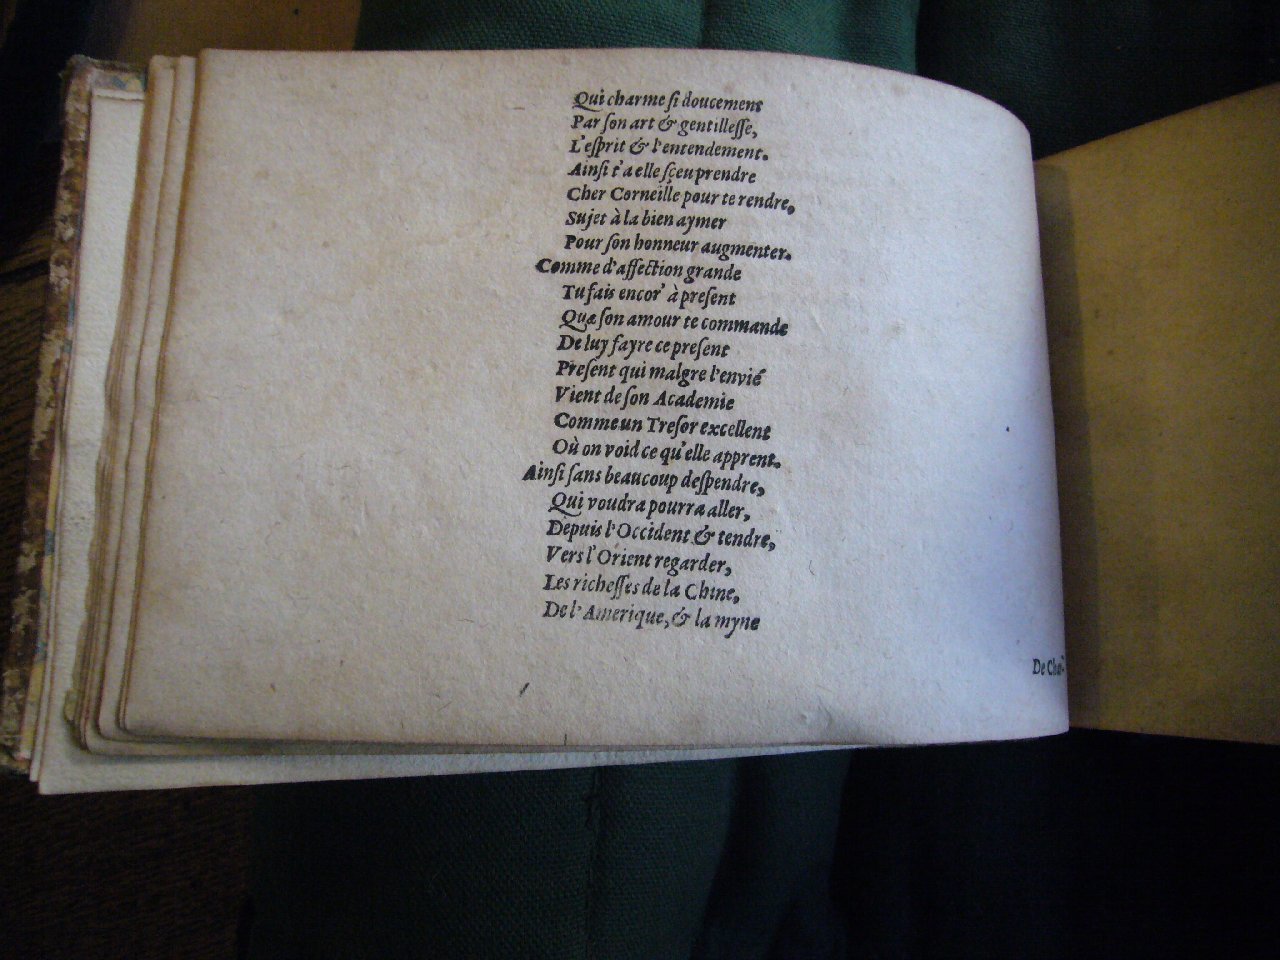 Qui charme ſi doucement
Par ſon art & gentilleſſe,
L'eſprit & l'entendement.
Ainſi t'a elle ſçeu prendre
Cher Corneille pour te rendre,
Sujet à la bien aymer
Pour ſon honneur augmenter.
Comme d'affection grande
Tu fais encor' à preſent
Quæ ſon amour te commande
De luy fayre ce preſent
Preſent qui malgre l'envié
Vient de ſon Academie
Comme un Treſor excellent
Où on void ce qu'elle apprent.
Ainſi ſans beaucoup deſpendre,
Qui voudra pourra aller,
Depuis l'Occident & tendre,
Vers l'Orient regarder,
Les richeſſes de la Chine,
De l'Amerique, & la myne
De Cha-